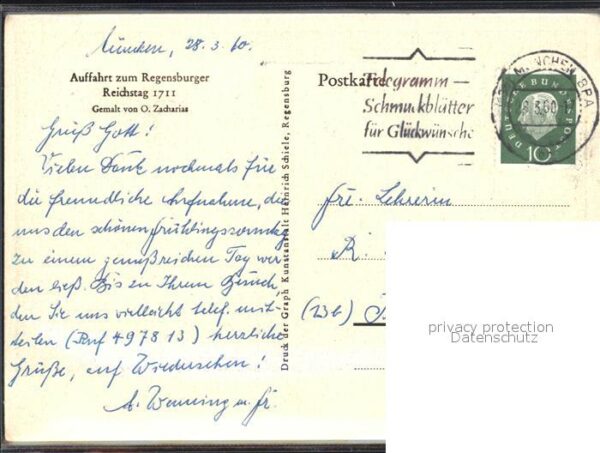 München, 28.3.60.
Auffahrt zum Regensburger
Reichstag 1711
Gemalt von O. Zacharias
Grüß Gott!
Vielen Dank nochmals für
die freundliche Aufnahme, die
uns den schönen Frühlingssonntag
zu einem genußreichen Tag wer-
den ließ. Bis zu Ihrem Besuch,
den Sie uns vielleicht telef. mit-
teilen (Ruf 497813) herzliche
Grüße, auf Wiedersehen!
Druck der Graph Kunstanstalt Heinrich Schiele, Regensburg
Postkarte
Telegramm-
Schmuckblätter
für Glückwünsche
MÜNCHEN BPA
3.60
DEUTSCHE BUNDESPOST
10
Frl. Lehrerin
R.
(13b)
privacy protection
Datenschutz